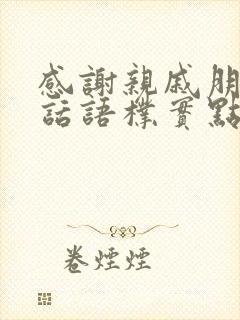 感謝親戚朋
話語樸實點
卷煙煙